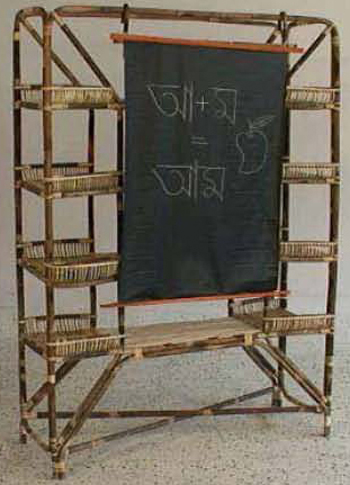 আ+ম
=
আম